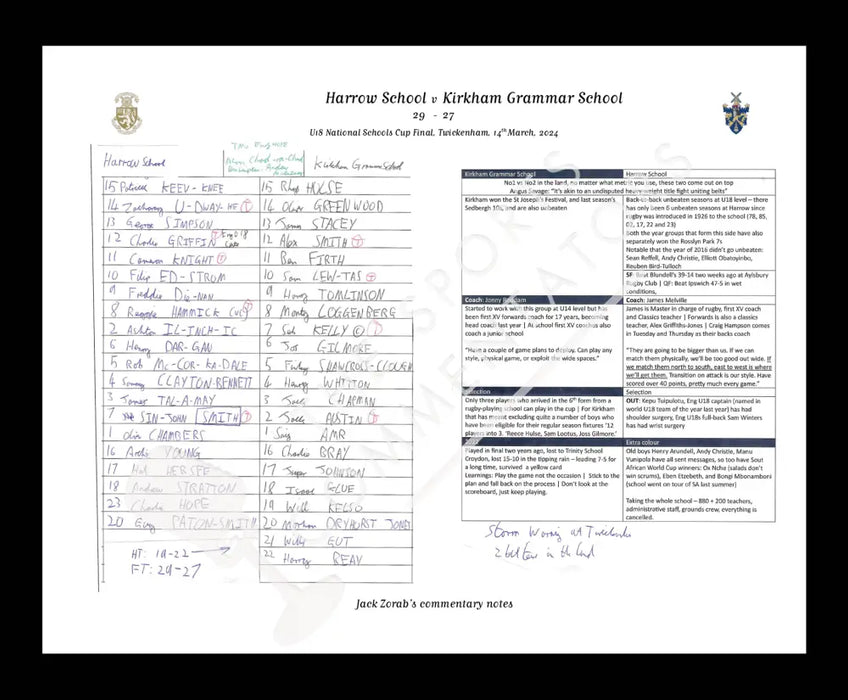 Harrow School v Kirkham Grammar School
29 - 27
U18 National Schools Cup Final, Twickenham, 14th March, 2024
Harrow School
Kirkham Grammar School
15 Patrick KEEV-KNEE
14 Zachary U-DWAY-HE
13 George SIMPSON
12 Charlie GRIFFIN Eng U18
11 Cameron KNIGHT
10 Filip ED-STROM
9 Freddie Dig-NAN
8 HAMMICK (vc)
2 Ashton IL-INCH-IC
6 Henry DAR-GAN
5 Rob Mc-COR-KA-DALE
4 Sonny CLAYTON-BENNETT
3 James TAL-A-MAY
7 SIN-JOHN SMITH
1 Olly CHAMBERS
16 Archie YOUNG
17 Hal HERSEE
18 Andrew STRATTON
23 Charlie HOPE
20 Guy PATON-SMITH
15 Rhys HULSE
14 Oliver GREENWOOD
13 Tomm STACEY
12 Alex SMITH
11 Ben FIRTH
10 Sam LEW-TAS
9 Harry TOMLINSON
8 Monty LOGGENBERG
7 Sol KELLY (C)
6 Jos GILMORE
5 Finlay SHAWCROSS-CLOUGH
4 Harry WHITTON
3 Jack CHAPMAN
2 Jack AUSTIN
1 AMR
16 Charlie BRAY
17 JOHNSON
18 Isaac GLUE
19 Will KELSO
20 DRYHURST JONES
21 Willy GUT
22 Harry REAY
HT: 19-22
FT: 29-27
Kirkham Grammar School
Harrow School
No1 vs No2 in the land, no matter what metric you use, these two come out on top
Angus Savage: "It's akin to an undisputed heavyweight title fight uniting belts"
Kirkham won the St Joseph's Festival, and last season's
Sedbergh 10s, and are also unbeaten
Back-to-back unbeaten seasons at U18 level – there
has only been 6 unbeaten seasons at Harrow since
rugby was introduced in 1926 to the school (78, 85,
02, 17, 22 and 23)
Both the year groups that form this side have also
separately won the Rosslyn Park 7s
Notable that the year of 2016 didn't go unbeaten:
Sean Reffell, Andy Christie, Elliott Obatoyinbo,
Reuben Bird-Tulloch
SF: Beat Blundell's 39-14 two weeks ago at Aylsbury
Rugby Club | QF: Beat Ipswich 47-5 in wet
conditions,
Coach: Jonny Roddam
Coach: James Melville
Started to work with this group at U14 level but has
been first XV forwards coach for 17 years, becoming
head coach last year | At school first XV coaches also
coach a junior school
"Have a couple of game plans to deploy. Can play any
style, physical game, or exploit the wide spaces."
James is Master in charge of rugby, first XV coach
and Classics teacher | Forwards is also a classics
teacher, Alex Griffiths-Jones | Craig Hampson comes
in Tuesday and Thursday as their backs coach
"They are going to be bigger than us. If we can
match them physically, we'll be too good out wide. If
we match them north to south, east to west is where
we'll get them. Transition on attack is our style. Have
scored over 40 points, pretty much every game."
Selection
Selection
Only three players who arrived in the 6th form from a
rugby-playing school can play in the cup | For Kirkham
that has meant excluding quite a number of boys who
have been eligible for their regular season fixtures '12
players into 3. 'Reece Hulse, Sam Lootus, Joss Gilmore.'
OUT: Kepu Tuipulotu, Eng U18 captain (named in
world U18 team of the year last year) has had
shoulder surgery, Eng U18s full-back Sam Winters
has had wrist surgery
Extra colour
Played in final two years ago, lost to Trinity School
Croydon, lost 15-10 in the tipping rain – leading 7-5 for
a long time, survived a yellow card
Learnings: Play the game not the occasion | Stick to the
plan and fall back on the process | Don't look at the
scoreboard, just keep playing.
Old boys Henry Arundell, Andy Christie, Maru
Vunipola have all sent messages, so too have Sout
African World Cup winners: Ox Nche (salads don't
win scrums), Eben Etzebeth, and Bongi Mbonambi
(school went on tour of SA last summer)
Taking the whole school – 880 + 200 teachers,
administrative staff, grounds crew, everything is
cancelled.
Storm Warning at Twickenham
2 between in the land
Jack Zorab's commentary notes